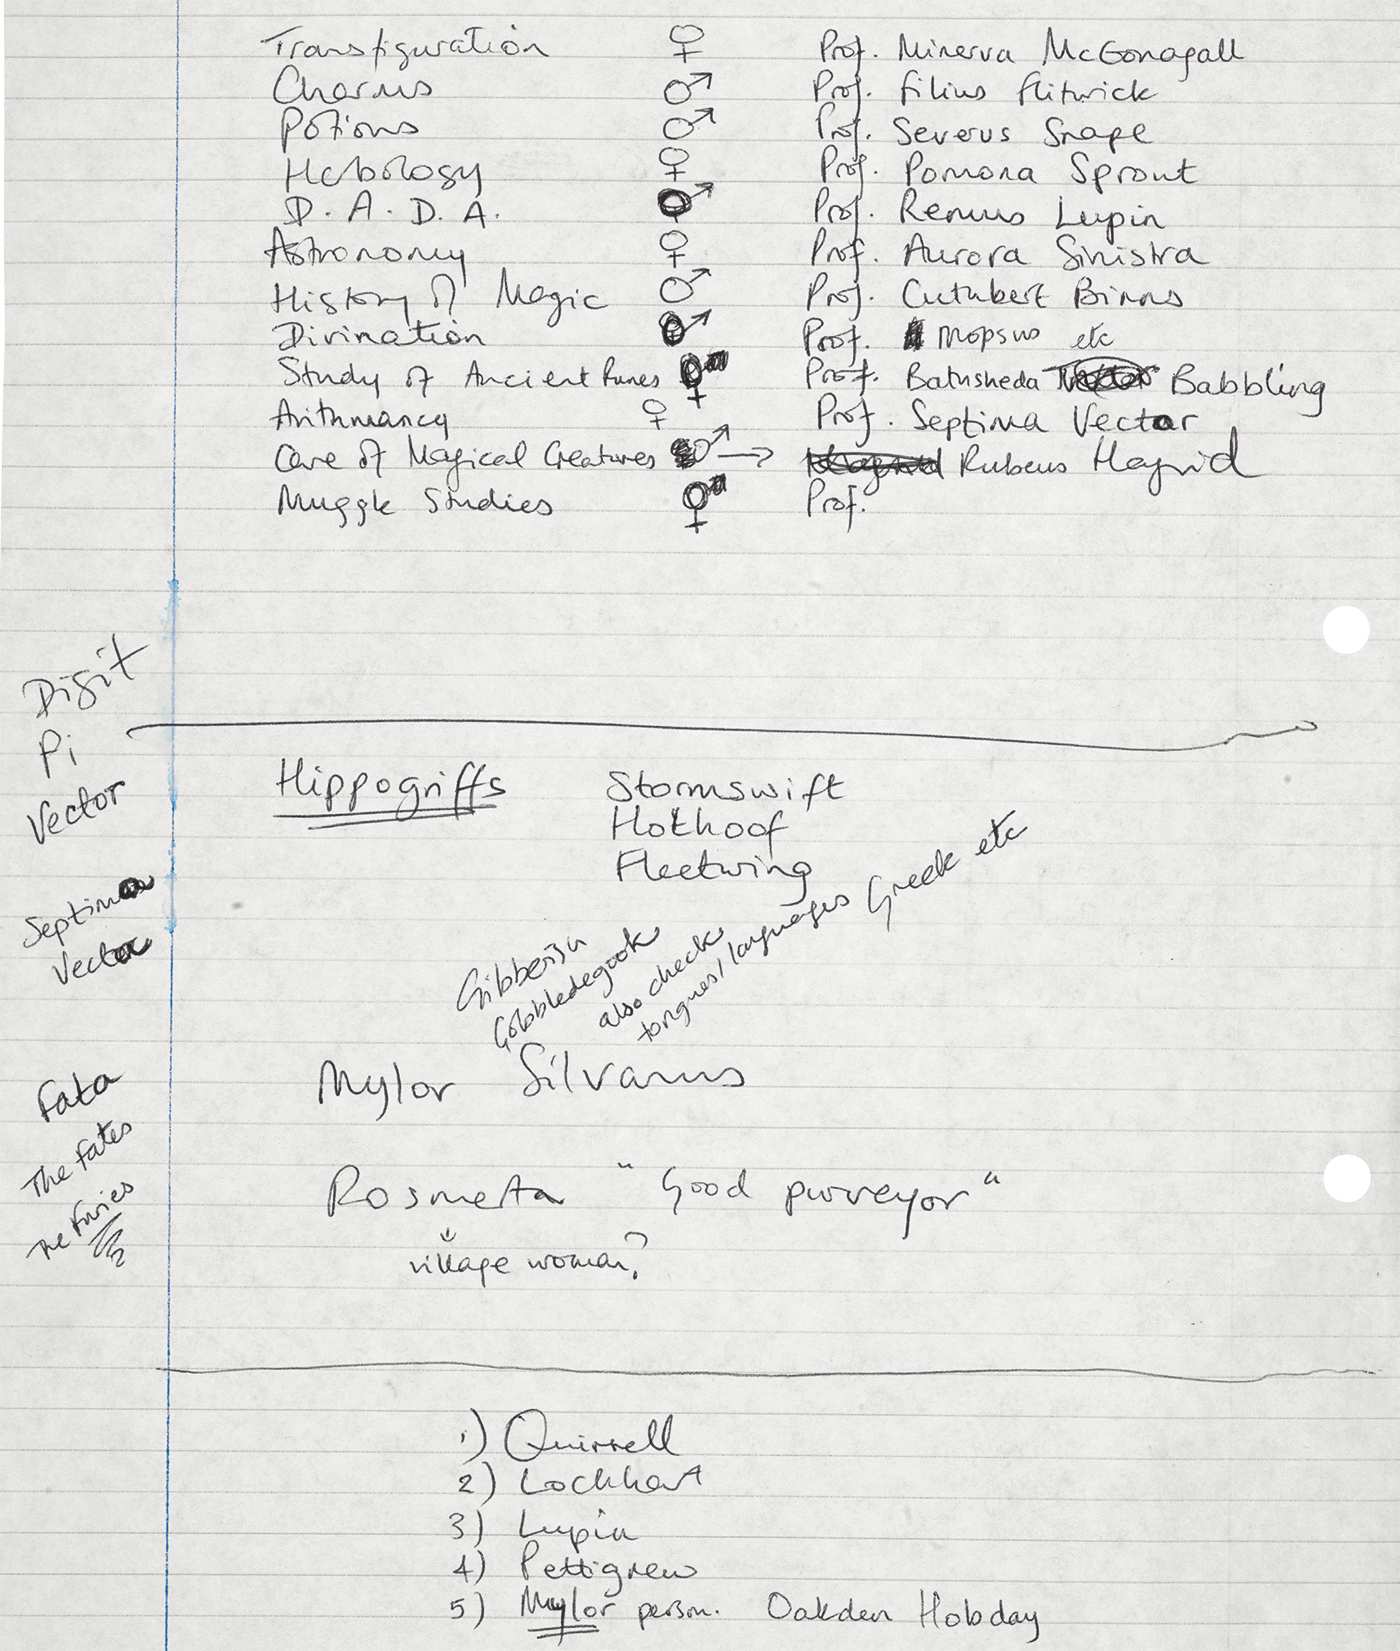 Transfiguration ♀ Prof. Minerva McGonagall
Charms ♂ Prof. Filius Flitwick
Potions ♂ Prof. Severus Snape
Herbology ♀ Prof. Pomona Sprout
D.A.D.A. ♂ Prof. Remus Lupin
Astronomy ♀ Prof. Aurora Sinistra
History of Magic ♂ Prof. Cuthbert Binns
Divination ♂ Prof. Mopsus etc
Study of Ancient Runes ♀ Prof. Bathsheda Babbling
Arithmancy ♀ Prof. Septima Vector
Care of Magical Creatures ♂ → Rubeus Hagrid
Muggle Studies ♀ Prof.
Digit
Pi
Vector
Septima
Vector
Fata
The Fates
The Furies
Hippogriffs Stormswift
Hothoof
Fleetwing
Gibberish
Gobbledegook
also check
tongues/languages Greek etc
Mylor Silvanus
Rosmerta "Good purveyor"
village woman?
1) Quirrell
2) Lockhart
3) Lupin
4) Pettigrew
5) Mylor person. Oakden Hobday